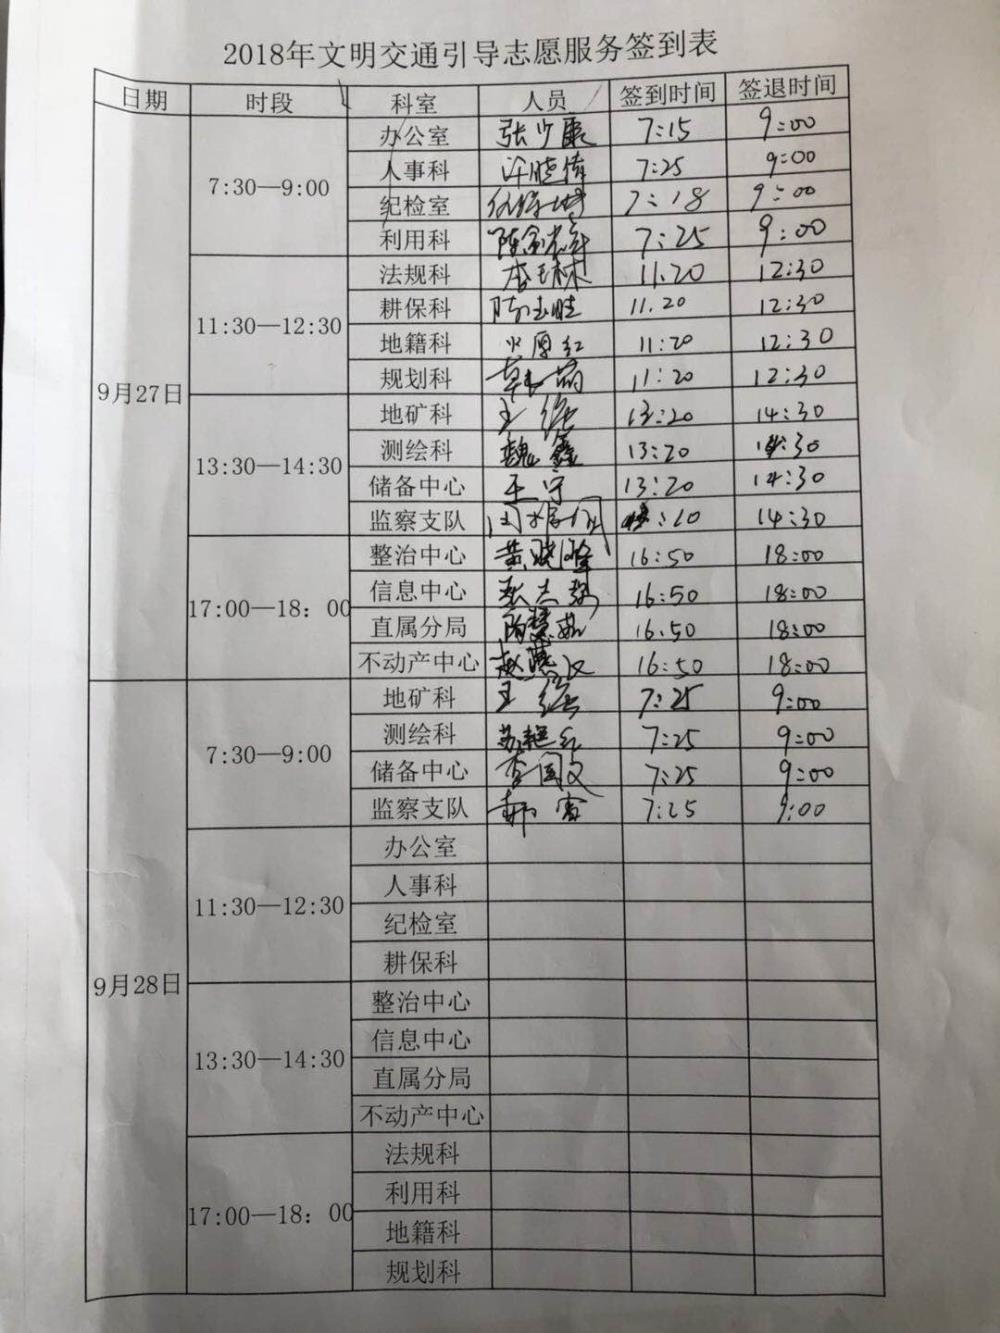 2018年文明交通引导志愿服务签到表
日期 时段 科室 人员 签到时间 签退时间
9月27日
7:30—9:00
办公室 张少康 7:15 9:00
人事科 许晓倩 7:25 9:00
纪检室 7:18 9:00
利用科 7:25 9:00
11:30—12:30
法规科 李玉林 11.20 12:30
耕保科 陈志胜 11.20 12:30
地籍科 11:20 12:30
规划科 11:20 12:30
13:30—14:30
地矿科 王 13:20 14:30
测绘科 魏鑫 13:20 14:30
储备中心 王宁 13:20 14:30
监察支队 :10 14:30
整治中心 黄晓峰 16:50 18:00
17:00—18：00
信息中心 16:50 18:00
直属分局 16.50 18:00
不动产中心 赵慧文 16:50 18:00
9月28日
7:30—9:00
地矿科 王 7:25 9:00
测绘科 苏艳红 7:25 9:00
储备中心 李国文 7:25 9:00
监察支队 7:25 9:00
11:30—12:30
办公室
人事科
纪检室
耕保科
13:30—14:30
整治中心
信息中心
直属分局
不动产中心
17:00—18：00
法规科
利用科
地籍科
规划科